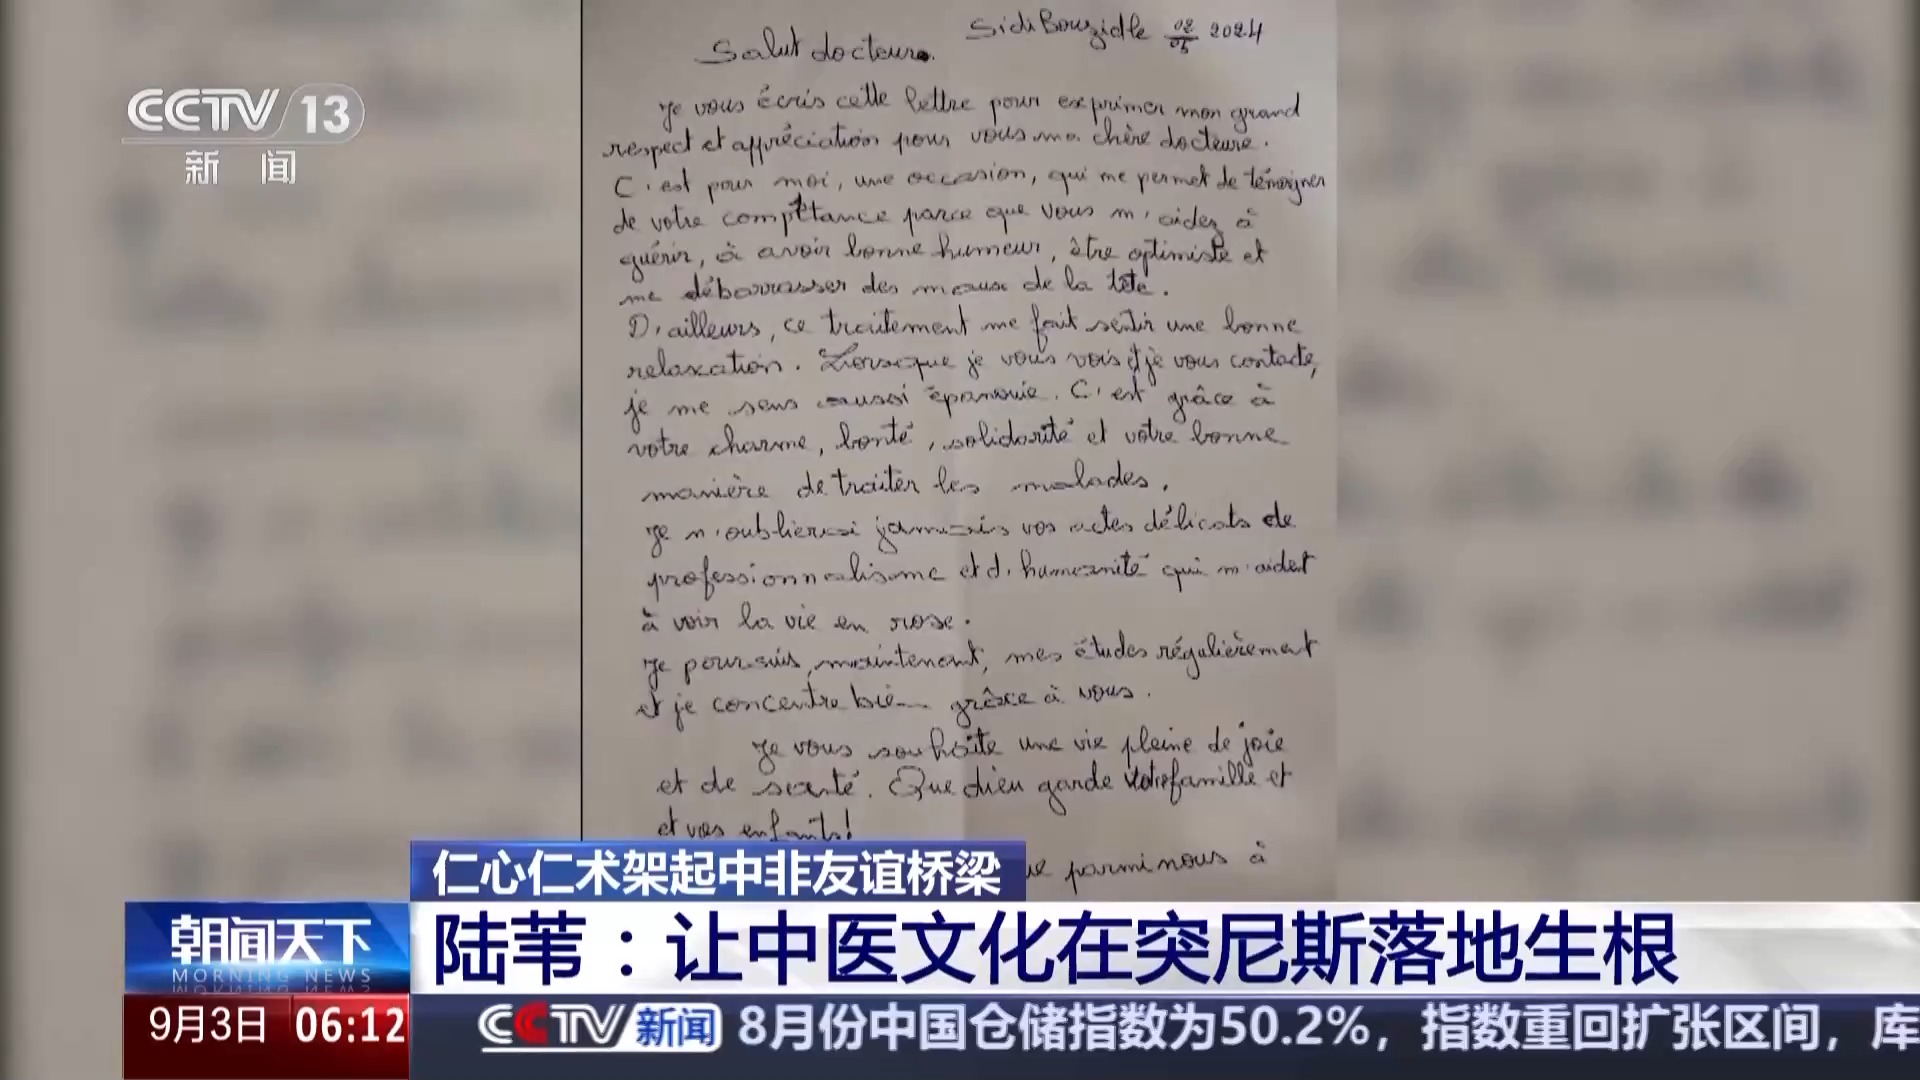 CCTV 13
新闻
Sidi Bouzid le 02/05 2024
Salut docteur.
Je vous écris cette lettre pour exprimer mon grand
respect et appréciation pour vous ma chère docteure.
C'est pour moi, une occasion, qui me permet de témoigner
de votre compétance parce que vous m'aidez à
guérir, à avoir bonne humeur, être optimiste et
me débarrasser des maux de la tête.
D'ailleurs, ce traitement me fait sentir une bonne
relaxation. Lorsque je vous vois et je vous contacte,
je me sens aussi épanouie. C'est grâce à
votre charme, bonté, solidarité et votre bonne
manière de traiter les malades.
Je n'oublierai jamais vos actes délicats de
professionnalisme et d'humanité qui m'aident
à voir la vie en rose.
Je poursuis, maintenant, mes études régulièrement
et je concentre bien grâce à vous.
Je vous souhaite une vie pleine de joie
et de santé. Que dieu garde votre famille et
et vos enfants!
parmi nous à
仁心仁术架起中非友谊桥梁
朝闻天下
MORNING NEWS
陆苇：让中医文化在突尼斯落地生根
9月3日 06:12
CCTV新闻 8月份中国仓储指数为50.2%，指数重回扩张区间，库